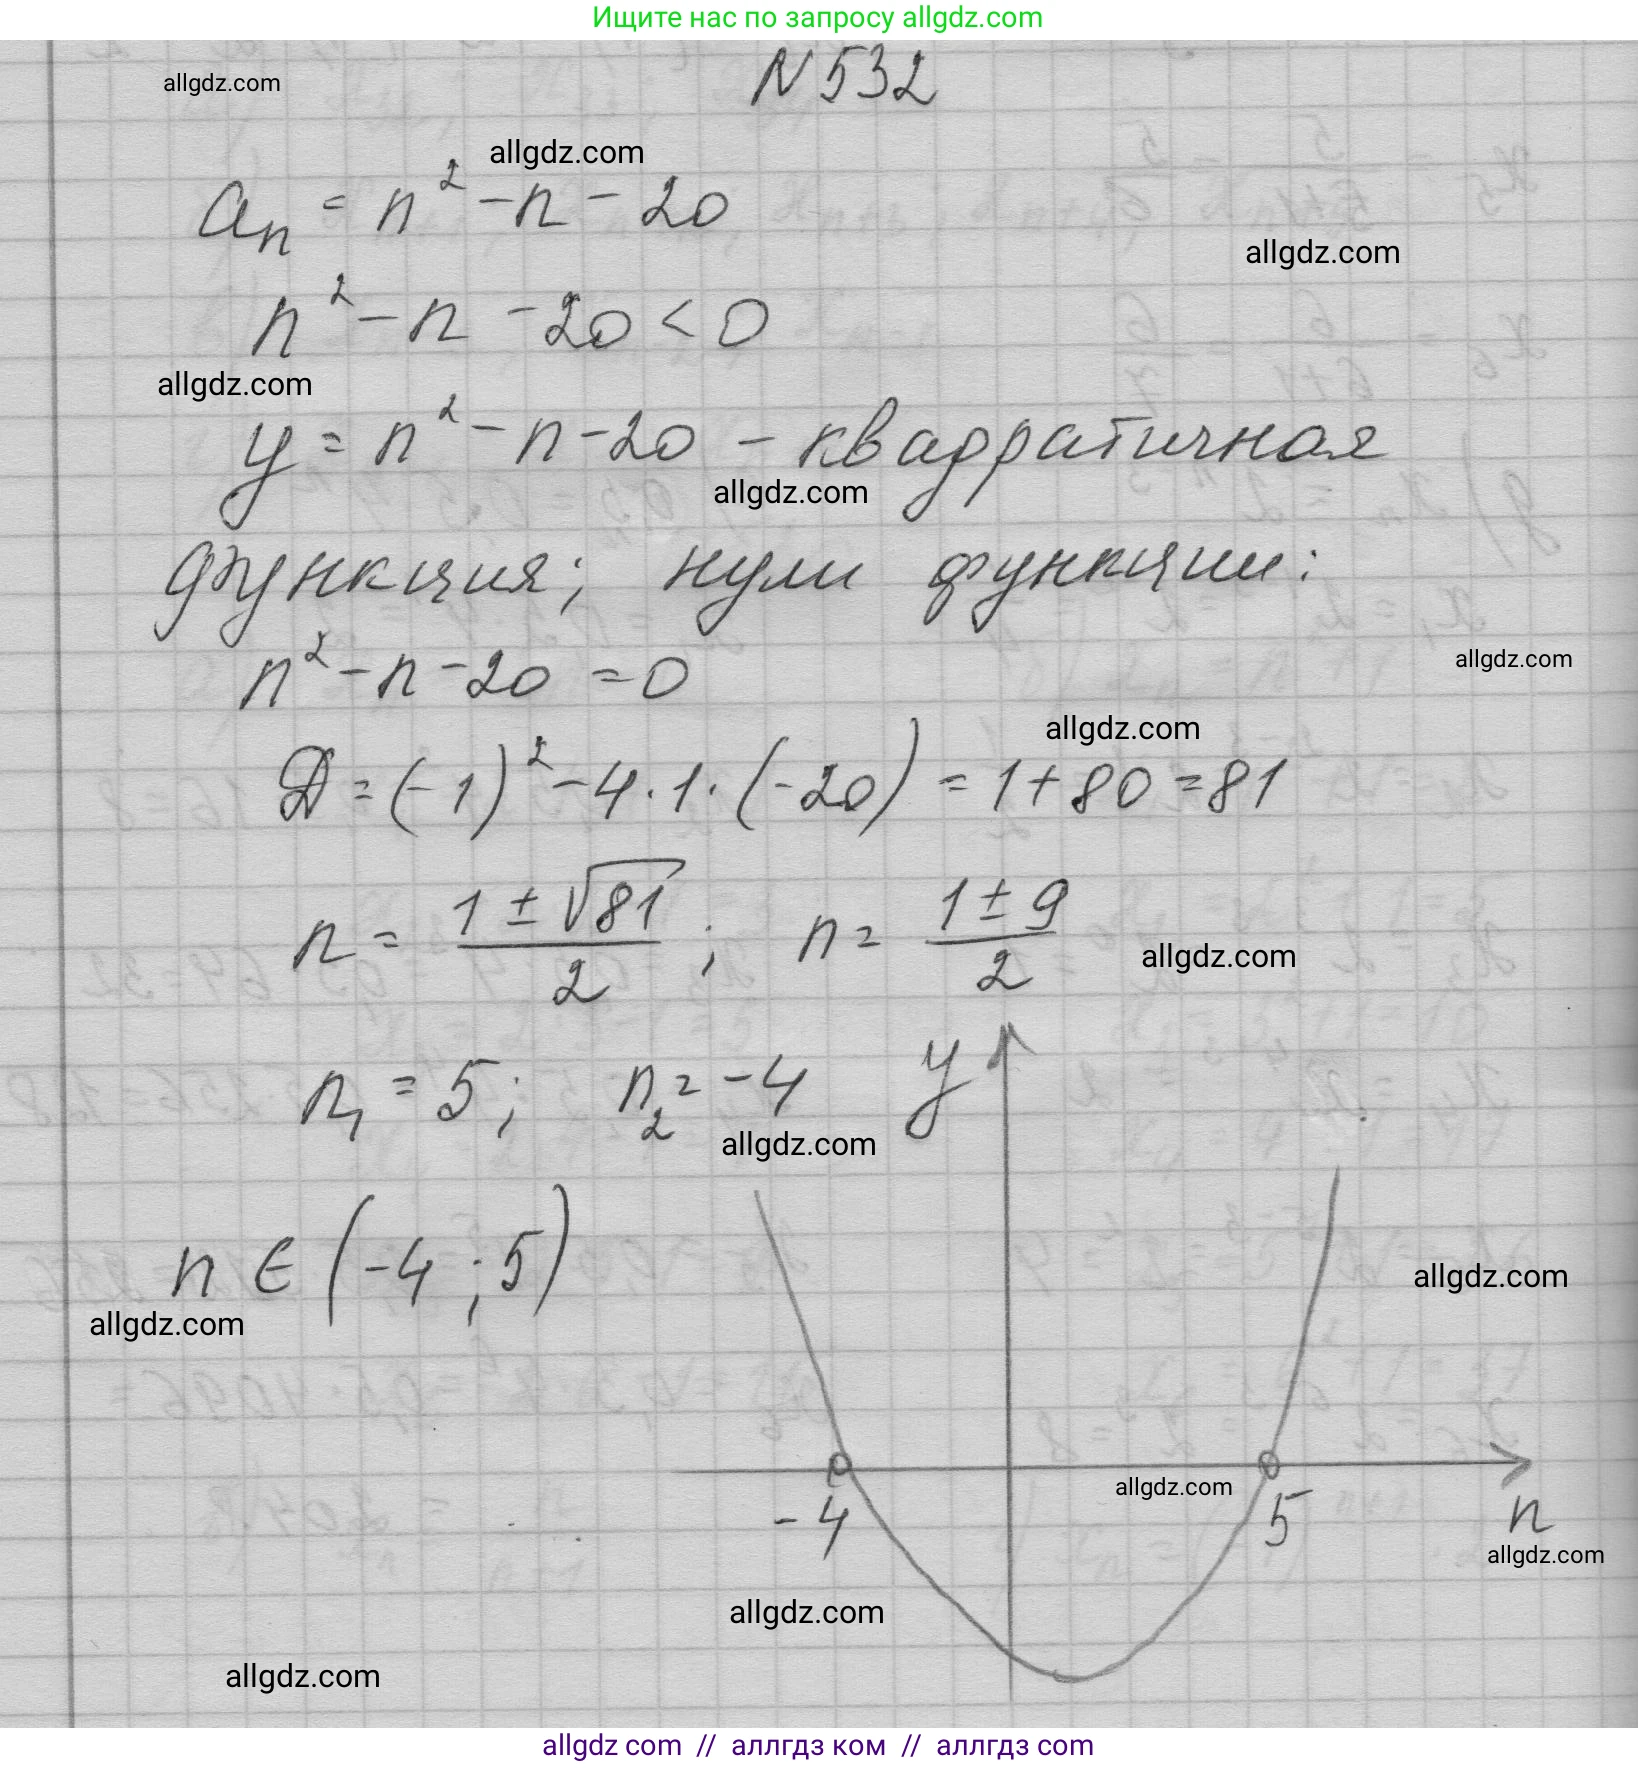 Ищите нас по запросу allgdz.com
N 532
allgdz.com
allgdz.com
aₙ = n² - n - 20
allgdz.com
n² - n - 20 < 0
allgdz.com
y = n² - n - 20 - квадратичная
allgdz.com
функция; нули функции:
n² - n - 20 = 0
allgdz.com
allgdz.com
Д = (-1)² - 4 · 1 · (-20) = 1 + 80 = 81
n = (1 ± √81)/2 ; n = (1 ± 9)/2
allgdz.com
n₁ = 5; n₂ = -4
y
allgdz.com
n ∈ (-4 ; 5)
allgdz.com
allgdz.com
allgdz.com
-4 5 n
allgdz.com
allgdz.com
allgdz.com
allgdz com // аллгдз ком // аллгдз com